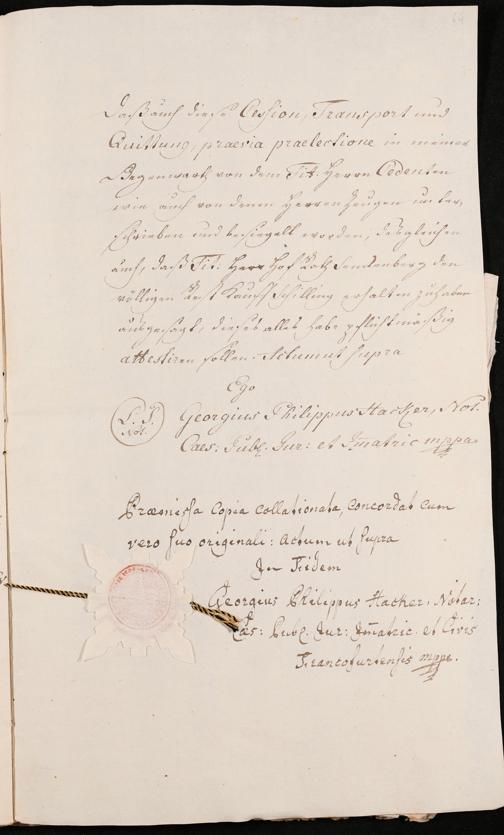 64
Daß auch diese Cession, Transport und
Quittung, praevia praelectione in meiner
Gegenwarth von dem Tit: Herrn Cedenten
wie auch von denen Herren Zeugen unter,
schrieben und besiegelt worden, desgleichen
auch, daß Tit: Herr Hof Rath Senckenberg den
völligen Rest Kauff Schilling erhalten zu haben
ausgesagt, dieses alles habe pflichtmäßig
attestiren sollen. Actum ut supra
Ego
(L. S.
Not.)
Georgius Philippus Hacker, Not.
Caes: Publ: Jur: et Imatric mppa
Praemissa Copia Collationata, Concordat cum
vero suo originali: Actum ut supra
In Fidem
Georgius Philippus Hacker, Notar:
Caes: Publ: Jur: Imatric. et Civis
Francofurtensis mppa.